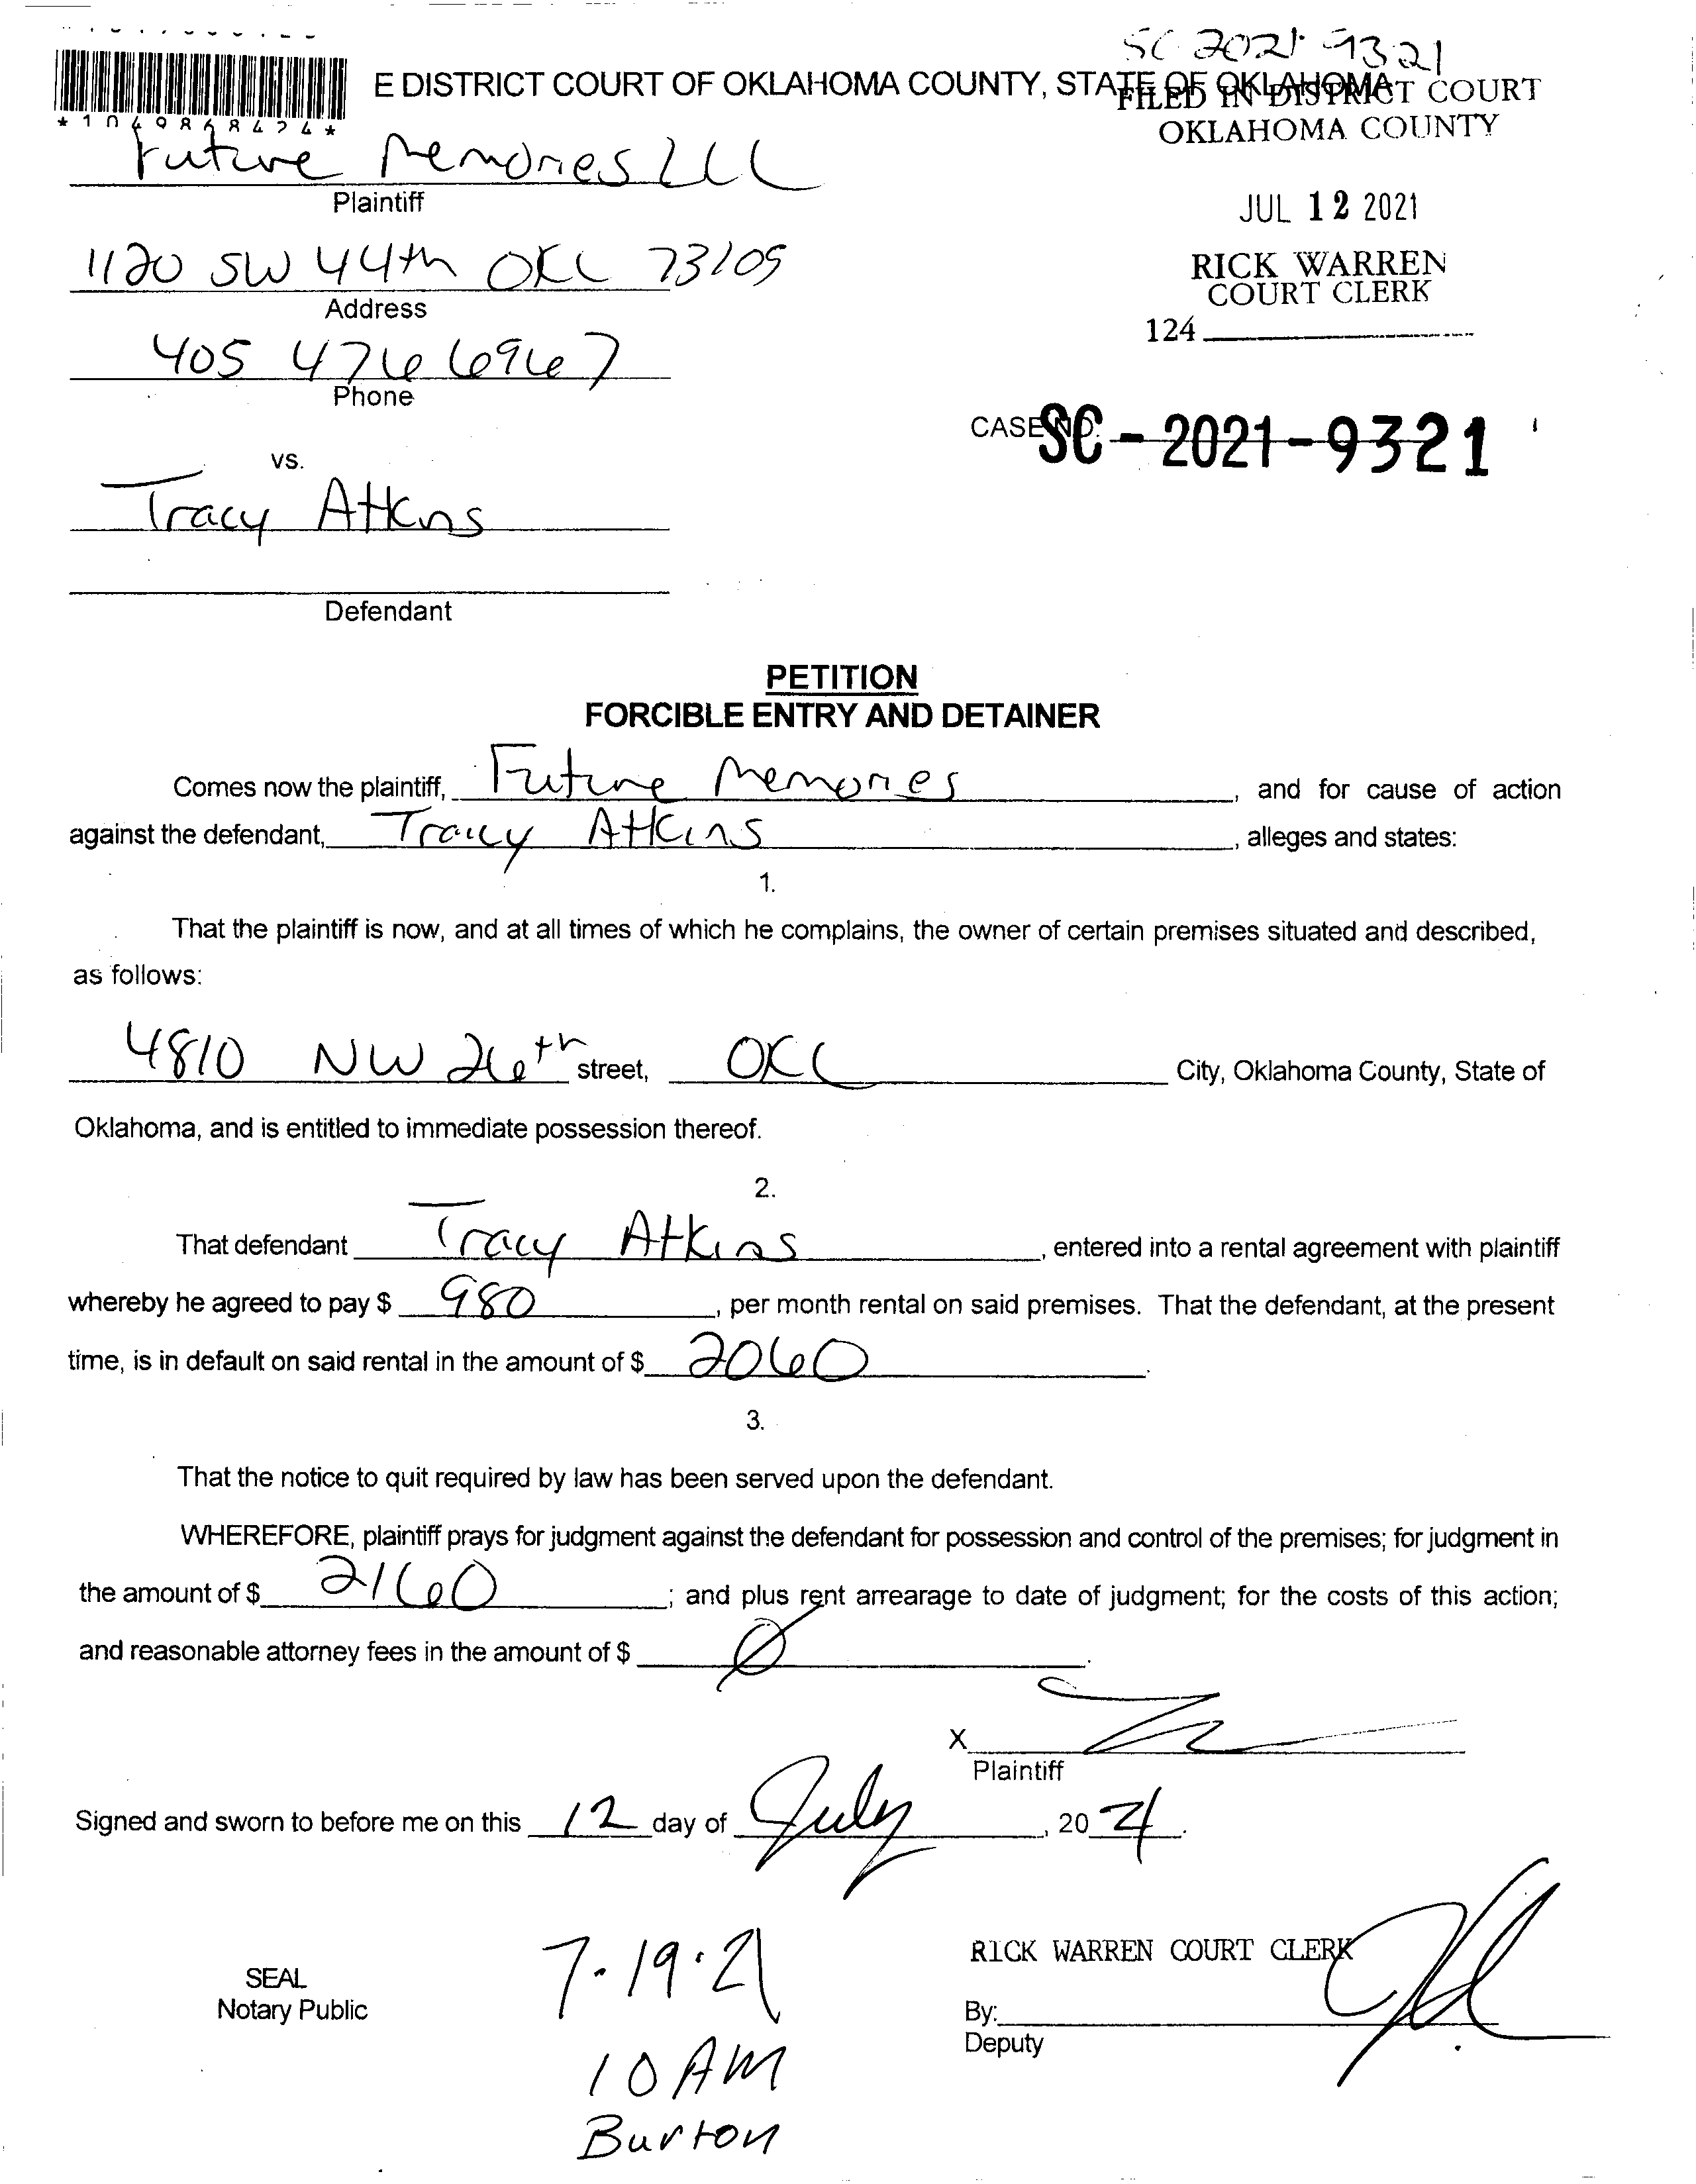 SC 2021 9321
E DISTRICT COURT OF OKLAHOMA COUNTY, STATE OF OKLAHOMA
FILED IN DISTRICT COURT
OKLAHOMA COUNTY
Future Memories LLC
Plaintiff
JUL 12 2021
1120 SW 44th OKC 73109
Address
RICK WARREN
COURT CLERK
124
405 476 6967
Phone
CASE NO. SC-2021-9321
vs.
Tracy Atkins
Defendant
PETITION
FORCIBLE ENTRY AND DETAINER
Comes now the plaintiff, Future Memories, and for cause of action
against the defendant, Tracy Atkins, alleges and states:
1.
That the plaintiff is now, and at all times of which he complains, the owner of certain premises situated and described,
as follows:
4810 NW 26th street, OKC City, Oklahoma County, State of
Oklahoma, and is entitled to immediate possession thereof.
2.
That defendant Tracy Atkins, entered into a rental agreement with plaintiff
whereby he agreed to pay $ 980, per month rental on said premises. That the defendant, at the present
time, is in default on said rental in the amount of $ 2060.
3.
That the notice to quit required by law has been served upon the defendant.
WHEREFORE, plaintiff prays for judgment against the defendant for possession and control of the premises; for judgment in
the amount of $ 2160; and plus rent arrearage to date of judgment; for the costs of this action;
and reasonable attorney fees in the amount of $ 0.
X
Plaintiff
Signed and sworn to before me on this 12 day of July, 2021.
SEAL
Notary Public
7.19.21
10 AM
Burton
RICK WARREN COURT CLERK
By:
Deputy